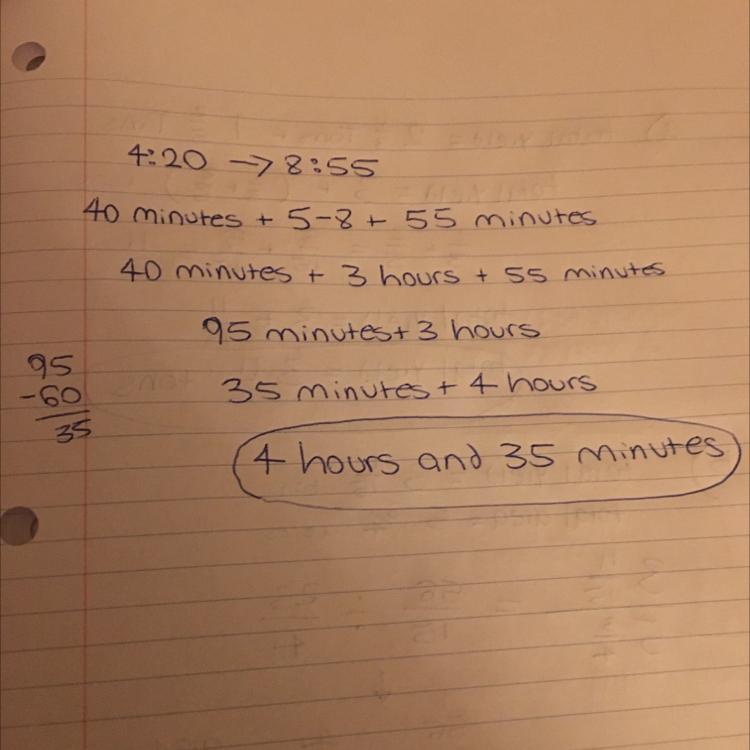 4:20 → 8:55
40 minutes + 5-8 + 55 minutes
40 minutes + 3 hours + 55 minutes
95 minutes + 3 hours
95
-60
35
35 minutes + 4 hours
4 hours and 35 minutes